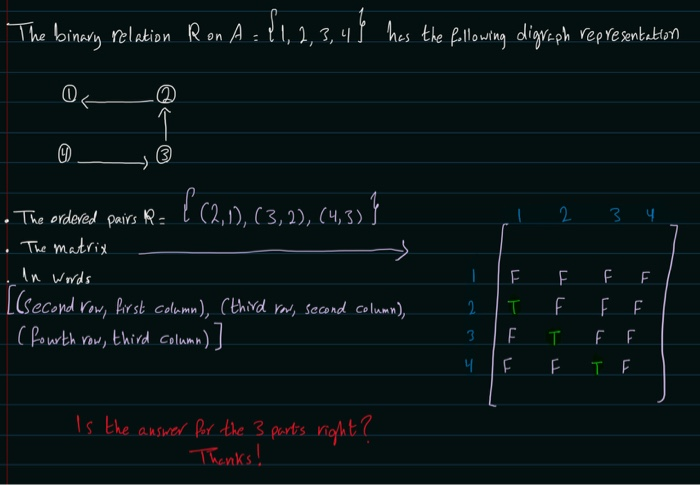 The binary relation R on A = {1, 2, 3, 4} has the following digraph representation
① ②
④ ③
• The ordered pairs R = { (2,1), (3,2), (4,3) }
• The matrix
• In words
[(second row, first column), (third row, second column),
(fourth row, third column)]
1 2 3 4
1 F F F F
2 T F F F
3 F T F F
4 F F T F
Is the answer for the 3 parts right?
Thanks!